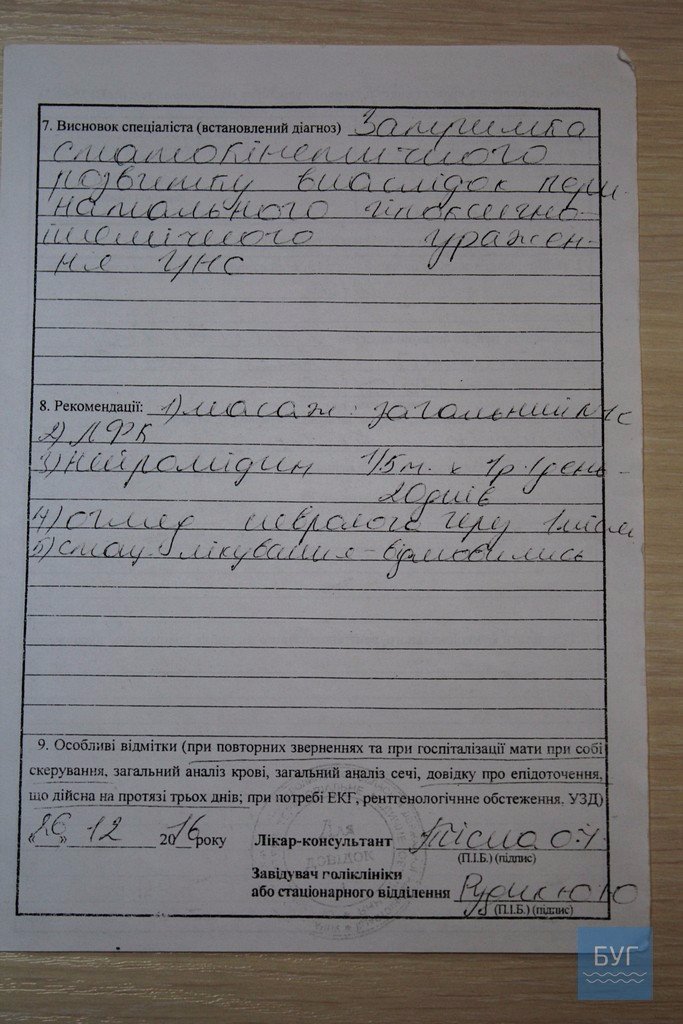 7. Висновок спеціаліста (встановлений діагноз) Затримка
статокінетичного
розвитку внаслідок пери-
натального гіпоксично-
ішемічного уражен-
ня ЦНС
8. Рекомендації: 1) масаж: загальний
2) ЛФК
3) нейромідин 1/5т. х 1р./день -
20днів
4) огляд невролога через 1міс
5) стац. лікування - відмовились
9. Особливі відмітки (при повторних зверненнях та при госпіталізації мати при собі
скерування, загальний аналіз крові, загальний аналіз сечі, довідку про епідоточення,
що дійсна на протязі трьох днів; при потребі ЕКГ, рентгенологічнне обстеження, УЗД)
„26" 12 2016 року Лікар-консультант
(П.І.Б.) (підпис)
Завідувач поліклініки
або стаціонарного відділення Рудик Ю Ю
(П.І.Б.) (підпис)
Для
довідок
БУГ